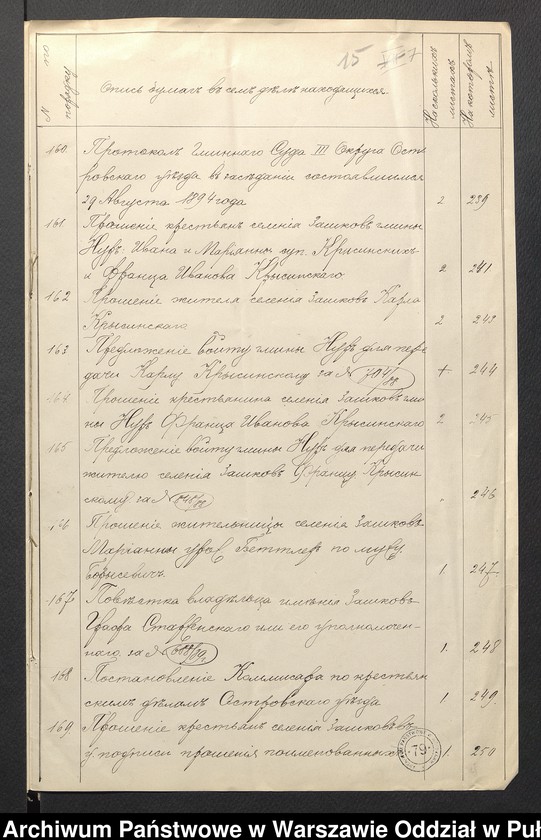 15 VII-7
N по порядку
Опись бумагъ въ семъ дѣлѣ находящихся.
На сколькихъ листахъ
На которомъ листѣ
160 Протоколъ Гминнаго Суда III Округа Остѣ
ровскаго уѣзда въ засѣданіи состоявшимся
29 Августа 1894 года 2 239
161 Прошеніе крестьянъ селенія Зашковъ гмины
Нуръ Ивана и Маріанны суп. Крысинскихъ
и Франца Иванова Крысинскаго 2 241
162 Прошеніе жителя селенія Зашковъ Карла
Крысинскаго 2 243
163 Предложеніе войту гмины Нуръ для пере
дачи Карлу Крысинскому за № 244
164 Прошеніе крестьянина селенія Зашковъ гми
ны Нуръ Франца Иванова Крысинскаго 2 245
165 Предложеніе войту гмины Нуръ для передачи
жителю селенія Зашковъ Францу Крысин
скому за № 246
166 Прошеніе жительницы селенія Зашковъ
Маріанны по мужу
Борысевичъ 1 247
167 Повѣстка владѣльца имѣнія Зашковъ
Графа Старженскаго или его уполномочен-
наго за № 1. 248
168 Постановленіе Коммисара по крестьян
скимъ дѣламъ Островскаго уѣзда 1 249.
169 Прошеніе крестьянъ селенія Зашковъ въ
у подписи прошенія поименованныхъ 1. 250
79
Archiwum Państwowe w Warszawie Oddział w Puł